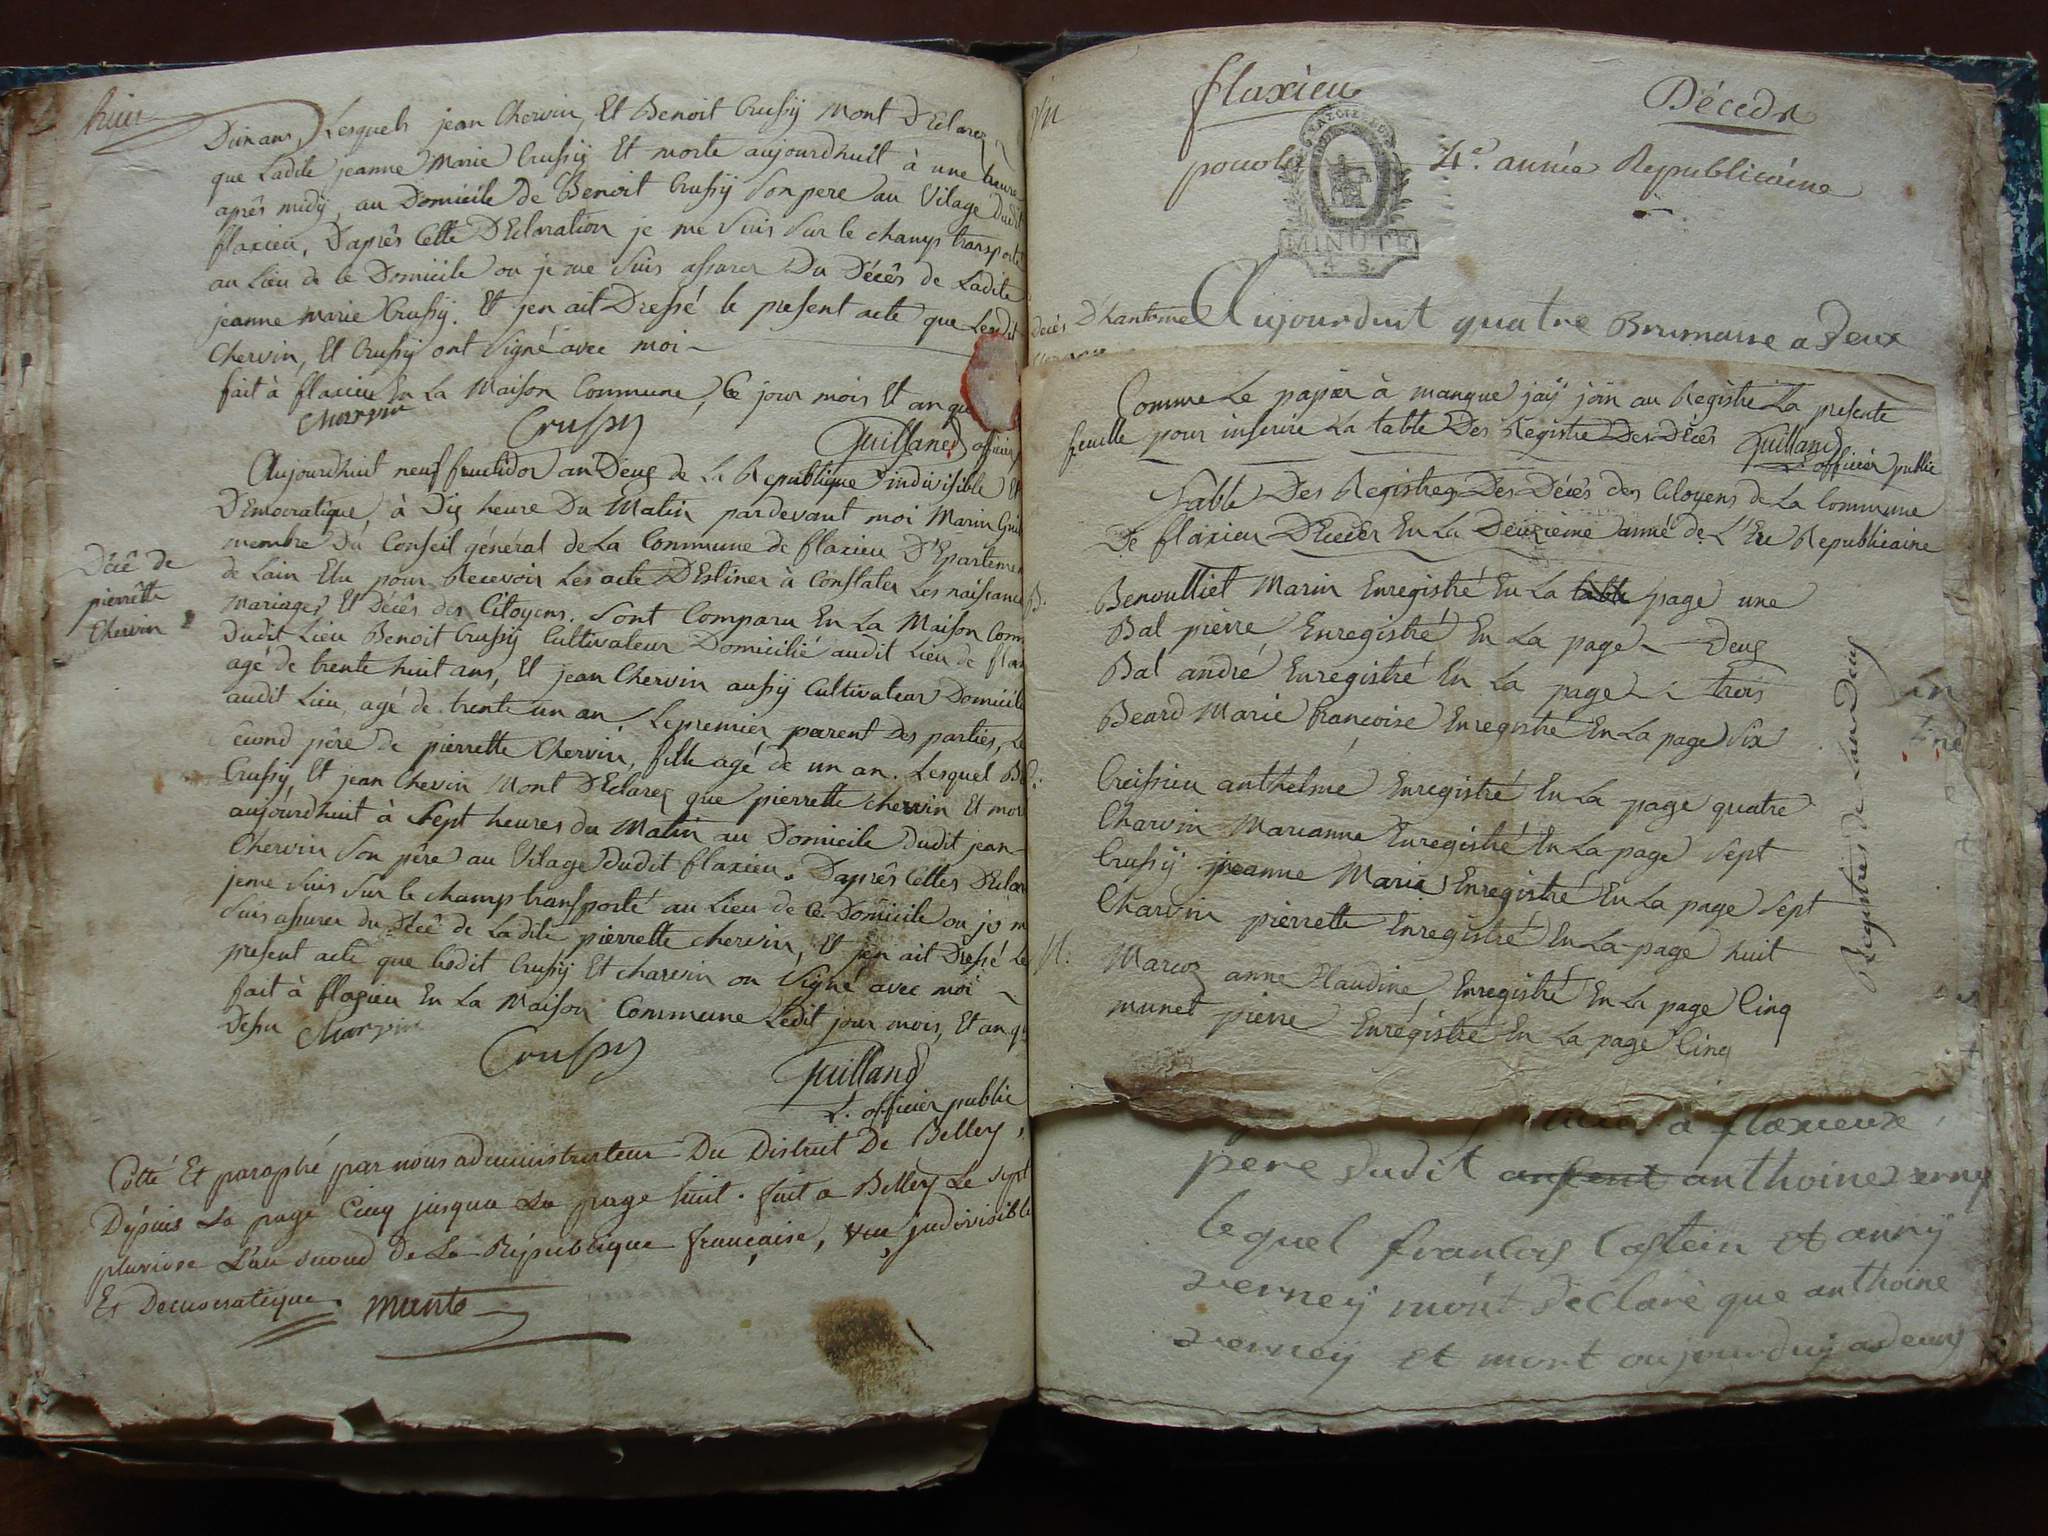 huit
Dun ans, Lesquels jean Chervin, Et Benoit Crussÿ Mont D'Eclarez
que Ladite jeanne Marie Crussÿ Et morte aujourdhuit à une heure
après midÿ, au Domicile de Benoit Crussÿ Son pere au Vilage Dudit
flaxieu, D'après Cette D'Eclaration je me Suis Sur le champ transporté
au Lieu de ce Domicile ou je me Suis assurer Du Décês de Ladite
jeanne marie Crussÿ. Et jen ait Dressé le present acte que Lesdit
Chervin, Et Crussÿ ont Signé avec moi
fait à flaxieu En La Maison Commune, Ce jour mois Et an que
Charvin
Crussy
Guilland officier
Aujourdhuit neuf fructidor an Deux de La Republique indivisible Et
D'Emocratique, à Dix heure Du Matin pardevant moi Marin Guil
membre Du Conseil général de La Commune de flaxieu D'Epartemen
de Lain Elu pour Recevoir Les acte D'Estiner à Constater Les naissance
Mariages Et Décês des Citoyens. Sont Comparu En La Maison Com
Dudit Lieu Benoit Crussÿ Cultivateur Domicilié audit Lieu de flax
agé de trente huit ans, Et jean Chervin aussÿ Cultivateur Domicile
audit Lieu, agé de trente un an Le premier parent Des parties, Le
Cecond pêre de pierrette Chervin, fille agé de un an. Lesquel B
Crussÿ, Et jean Chevin Mont D'Eclarez que pierrette chervin Et mor
aujourdhuit à Sept heures du Matin au Domicile dudit jean
Chervin Son pêre au Vilage dudit flaxieu. D'après Cettes D'Eclar
jeme Suis Sur le champ transporté au Lieu de ce Domicile ou je m
Suis assurer du Décê de Ladite pierrette chervin, Et jen ait Dressé Le
present acte que Lesdit Crussÿ Et charvin on Signé avec moi
fait à flaxieu En La Maison Commune Ledit jour mois, Et an q
Dessu Charvin
Crussy
Guilland
L. officier public
Décê de
pierrette
Chervin
Cotté Et paraphé par nous administrateur Du District De Belley,
Depuis La page Cinq jusqua La page huit. fait a Belley Le Sept
pluviose L'an second de La République française, une, indivisible
Et Democratique. munto
flaxieu
Décedx
pour la 4e. année Republicaine
MINUTE
4 S.
décès D'hantome Aujourduit quatre Brumaire a deux
Comme Le papier à manque jaÿ join au Registre La presente
feuille pour inserire La table Des Registre Des Décês Guilland
L. officier public
Table Des Registres Des Décês des Citoyens de La Commune
De flaxieu D'Ecedér En La Deuxième année de L'Ere Republicaine
B. Benoulliet Marin Enregistré En La table page une
Bal pierre Enregistré En La page Deux
Bal andré Enregistré En La page trois
Beard Marie francoise Enregistré En La page Six
C. Creissieu anthelme Enregistré En La page quatre
Charvin Marianne Enregistré En La page Sept
Crussÿ jeanne Marie Enregistré En La page Sept
Charvin pierrette Enregistré En La page huit
M. Marcoz anne Claudine, Enregistré En La page Cinq
munet pierre Enregistré En La page Cinq
Registres de Lan Deux
a flaxieux
pere dudit anthoine verney
lequel francois Castein et anny
verneÿ mont déclaré que anthoine
verneÿ et mort aujourduÿ a deux